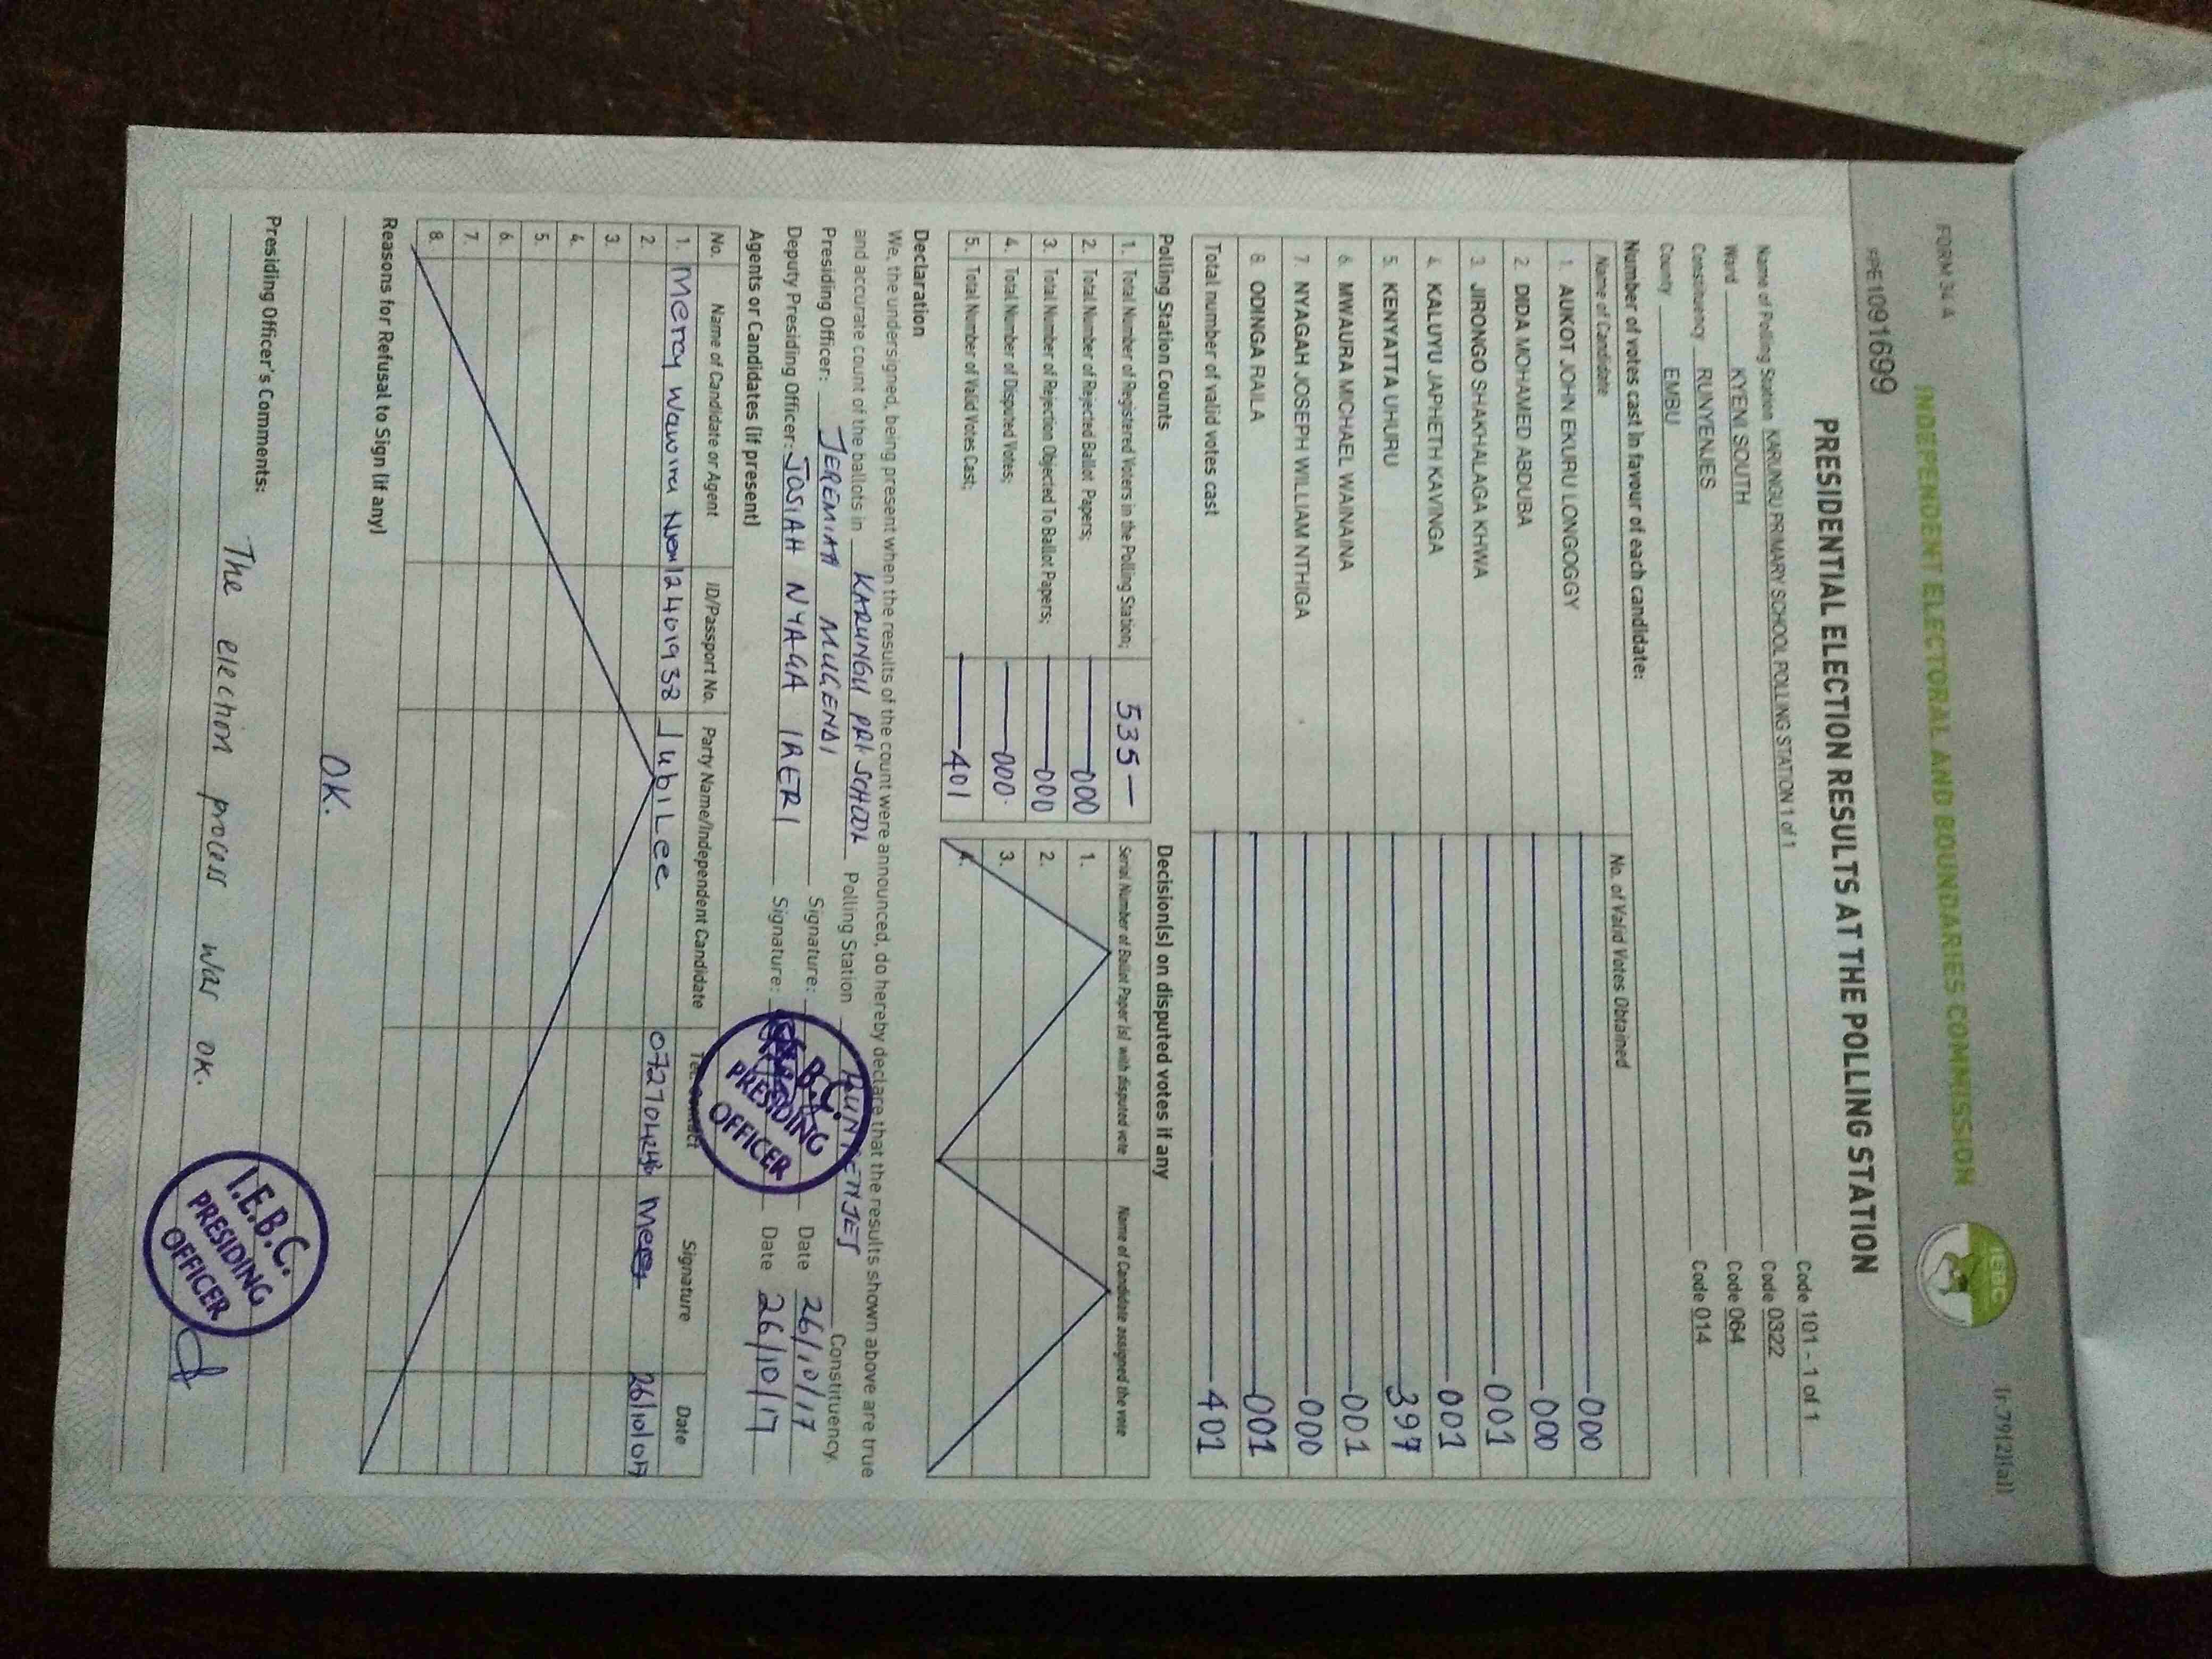 FORM 34 A
[r.79(2)(a)]
INDEPENDENT ELECTORAL AND BOUNDARIES COMMISSION
IEBC
PPE1091699
PRESIDENTIAL ELECTION RESULTS AT THE POLLING STATION
Name of Polling Station KARUNGU PRIMARY SCHOOL POLLING STATION 1 of 1 Code 101 - 1 of 1
Ward KYENI SOUTH Code 0322
Constituency RUNYENJES Code 064
County EMBU Code 014
Number of votes cast in favour of each candidate:
Name of Candidate No. of Valid Votes Obtained
1. AUKOT JOHN EKURU LONGOGGY 000
2. DIDA MOHAMED ABDUBA 000
3. JIRONGO SHAKHALAGA KHWA 001
4. KALUYU JAPHETH KAVINGA 001
5. KENYATTA UHURU 397
6. MWAURA MICHAEL WAINAINA 001
7. NYAGAH JOSEPH WILLIAM NTHIGA 000
8. ODINGA RAILA 001
Total number of valid votes cast 401
Polling Station Counts
1. Total Number of Registered Voters in the Polling Station; 535
2. Total Number of Rejected Ballot Papers; 000
3. Total Number of Rejection Objected To Ballot Papers; 000
4. Total Number of Disputed Votes; 000
5. Total Number of Valid Votes Cast; 401
Decision(s) on disputed votes if any
Serial Number of Ballot Paper (s) with disputed vote Name of Candidate assigned the vote
1.
2.
3.
4.
Declaration
We, the undersigned, being present when the results of the count were announced, do hereby declare that the results shown above are true
and accurate count of the ballots in KARUNGU PRI SCHOOL Polling Station RUNYENJES Constituency.
Presiding Officer: JEREMIAH MUGENDI Signature: Date 26/10/17
Deputy Presiding Officer: JOSIAH NYAGA IRERI Signature: Date 26/10/17
I.E.B.C.
PRESIDING
OFFICER
Agents or Candidates (if present)
No. Name of Candidate or Agent ID/Passport No. Party Name/Independent Candidate Tel. Contact Signature Date
1. Mercy Wawira 12401938 Jubilee Mercy 26/10/017
2.
3.
4.
5.
6.
7.
8.
Reasons for Refusal to Sign (if any)
OK.
Presiding Officer's Comments:
The election process was OK.
I.E.B.C.
PRESIDING
OFFICER